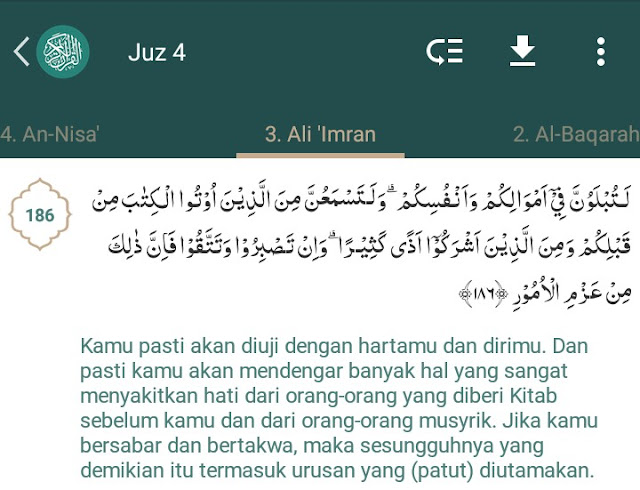 Juz 4
4. An-Nisa'
3. Ali 'Imran
2. Al-Baqarah
186
لَتُبْلَوُنَّ فِيْٓ اَمْوَالِكُمْ وَاَنْفُسِكُمْۗ وَلَتَسْمَعُنَّ مِنَ الَّذِيْنَ اُوْتُوا الْكِتٰبَ مِنْ
قَبْلِكُمْ وَمِنَ الَّذِيْنَ اَشْرَكُوْٓا اَذًى كَثِيْرًاۗ وَاِنْ تَصْبِرُوْا وَتَتَّقُوْا فَاِنَّ ذٰلِكَ
مِنْ عَزْمِ الْاُمُوْرِ ﴿١٨٦﴾
Kamu pasti akan diuji dengan hartamu dan dirimu. Dan
pasti kamu akan mendengar banyak hal yang sangat
menyakitkan hati dari orang-orang yang diberi Kitab
sebelum kamu dan dari orang-orang musyrik. Jika kamu
bersabar dan bertakwa, maka sesungguhnya yang
demikian itu termasuk urusan yang (patut) diutamakan.